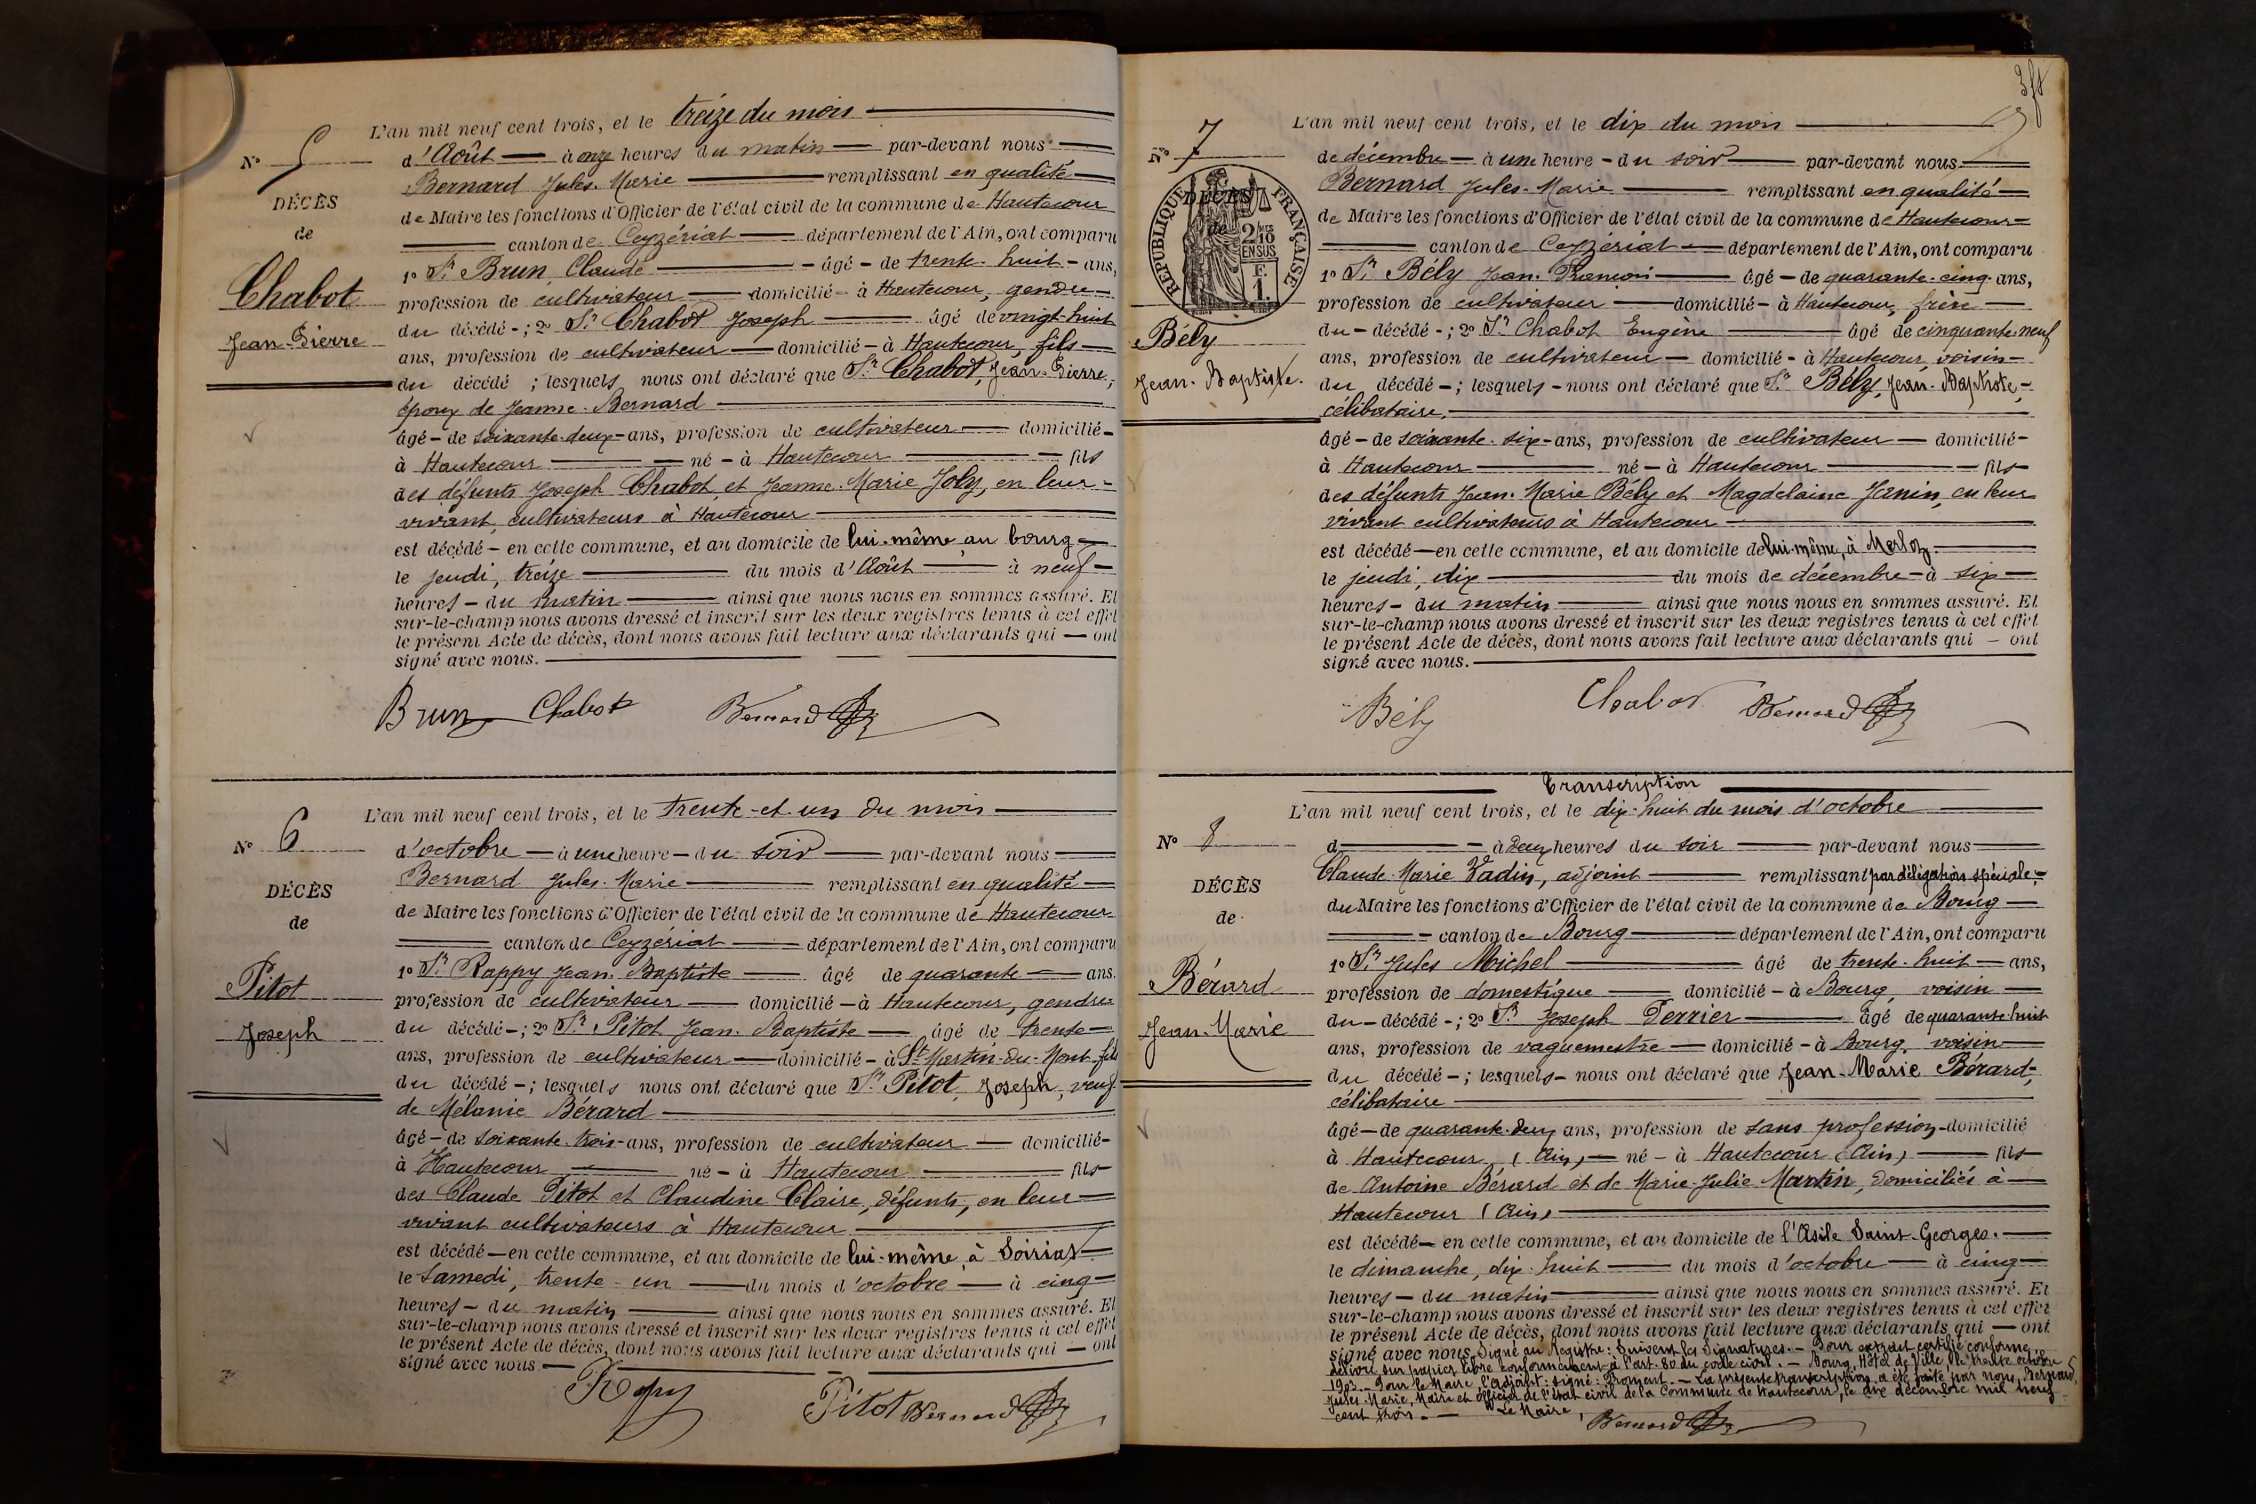 L'an mil neuf cent trois, et le treize du mois
N° 5
d'Août à onze heures du matin par-devant nous
Bernard Jules-Marie remplissant en qualité
DÉCÈS
de Maire les fonctions d'Officier de l'état civil de la commune de Hautecour
de
canton de Ceyzériat département de l'Ain, ont comparu
1° Sr Brun Claude âgé de trente-huit ans,
Chabot
profession de cultivateur domicilié à Hautecour, gendre
du décédé ; 2° Sr Chabot Joseph âgé de vingt-huit
Jean-Pierre
ans, profession de cultivateur domicilié à Hautecour, fils
du décédé ; lesquels nous ont déclaré que Sr Chabot, Jean-Pierre,
époux de Jeanne Bernard
âgé de soixante-deux ans, profession de cultivateur domicilié
à Hautecour né à Hautecour fils
des défunts Joseph Chabot et Jeanne-Marie Joly, en leur
vivant cultivateurs à Hautecour
est décédé en cette commune, et au domicile de lui-même, au bourg
le jeudi, treize du mois d'Août à neuf
heures du matin ainsi que nous nous en sommes assuré. Et
sur-le-champ nous avons dressé et inscrit sur les deux registres tenus à cet effet
le présent Acte de décès, dont nous avons fait lecture aux déclarants qui ont
signé avec nous.
Brun Chabot Bernard
L'an mil neuf cent trois, et le trente-et-un du mois
N° 6
d'octobre à une heure du soir par-devant nous
Bernard Jules-Marie remplissant en qualité
DÉCÈS
de Maire les fonctions d'Officier de l'état civil de la commune de Hautecour
de
canton de Ceyzériat département de l'Ain, ont comparu
1° Sr Rappy Jean-Baptiste âgé de quarante ans.
Pitot
profession de cultivateur domicilié à Hautecour, gendre
du décédé ; 2° Sr Pitot Jean-Baptiste âgé de trente
Joseph
ans, profession de cultivateur domicilié à St Martin-du-Mont fils
du décédé ; lesquels nous ont déclaré que Sr Pitot, Joseph, veuf
de Mélanie Bérard
âgé de soixante-trois ans, profession de cultivateur domicilié
à Hautecour né à Hautecour fils
des Claude Pitot et Claudine Claire, défunts, en leur
vivant cultivateurs à Hautecour
est décédé en cette commune, et au domicile de lui-même, à Soiriat
le Samedi, trente-un du mois d'octobre à cinq
heures du matin ainsi que nous nous en sommes assuré. Et
sur-le-champ nous avons dressé et inscrit sur les deux registres tenus à cet effet
le présent Acte de décès, dont nous avons fait lecture aux déclarants qui ont
signé avec nous
Pitot Bernard
L'an mil neuf cent trois, et le dix du mois
N° 7
de décembre à une heure du soir par-devant nous
RÉPUBLIQUE FRANÇAISE
2/10 EN SUS
F. 1.
Bernard Jules-Marie remplissant en qualité
DÉCÈS
de Maire les fonctions d'Officier de l'état civil de la commune de Hautecour
de
canton de Ceyzériat département de l'Ain, ont comparu
1° Sr Bély Jean-François âgé de quarante-cinq ans,
profession de cultivateur domicilié à Hautecour, frère
Bély
du décédé ; 2° Sr Chabot Eugène âgé de cinquante-neuf
ans, profession de cultivateur domicilié à Hautecour, voisin
Jean-Baptiste.
du décédé ; lesquels nous ont déclaré que Sr Bély, Jean-Baptiste,
célibataire,
âgé de soixante-six ans, profession de cultivateur domicilié
à Hautecour né à Hautecour fils
des défunts Jean-Marie Bély et Magdelaine Janin, en leur
vivant cultivateurs à Hautecour
est décédé en cette commune, et au domicile de lui-même, à Merloz.
le jeudi, dix du mois de décembre à six
heures du matin ainsi que nous nous en sommes assuré. Et
sur-le-champ nous avons dressé et inscrit sur les deux registres tenus à cet effet
le présent Acte de décès, dont nous avons fait lecture aux déclarants qui ont
signé avec nous.
Bély Chabot Bernard
Transcription
L'an mil neuf cent trois, et le dix-huit du mois d'octobre
N° 8
d à deux heures du soir par-devant nous
Claude-Marie Vadin, adjoint remplissant par délégation spéciale
DÉCÈS
du Maire les fonctions d'Officier de l'état civil de la commune de Bourg
de
canton de Bourg département de l'Ain, ont comparu
1° Sr Jules Michel âgé de trente-huit ans,
Bérard
profession de domestique domicilié à Bourg, voisin
du décédé ; 2° Sr Joseph Perrier âgé de quarante-huit
Jean-Marie
ans, profession de vaguemestre domicilié à Bourg, voisin
du décédé ; lesquels nous ont déclaré que Jean-Marie Bérard,
célibataire
âgé de quarante-deux ans, profession de sans profession domicilié
à Hautecour, (Ain) né à Hautecour (Ain) fils
de Antoine Bérard et de Marie-Julie Martin, domiciliés à
Hautecour (Ain)
est décédé en cette commune, et au domicile de l'Asile Saint-Georges.
le dimanche, dix-huit du mois d'octobre à cinq
heures du matin ainsi que nous nous en sommes assuré. Et
sur-le-champ nous avons dressé et inscrit sur les deux registres tenus à cet effet
le présent Acte de décès, dont nous avons fait lecture aux déclarants qui ont
signé avec nous. Signé au Registre : Suivent les Signatures. Pour extrait certifié conforme
délivré sur papier libre conformément à l'art. 80 du code civil. Bourg, Hôtel de Ville, le trente octobre
1903. Pour le Maire, l'adjoint : signé : Froment. La présente transcription a été faite par nous, Bernard,
Jules-Marie, Maire et officier de l'état civil de la Commune de Hautecour, le dix décembre mil neuf
cent trois. Le Maire, Bernard